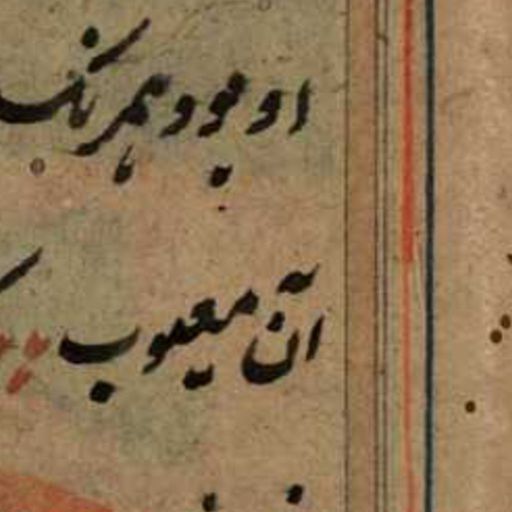 او بود و همرنک
آن معیوب